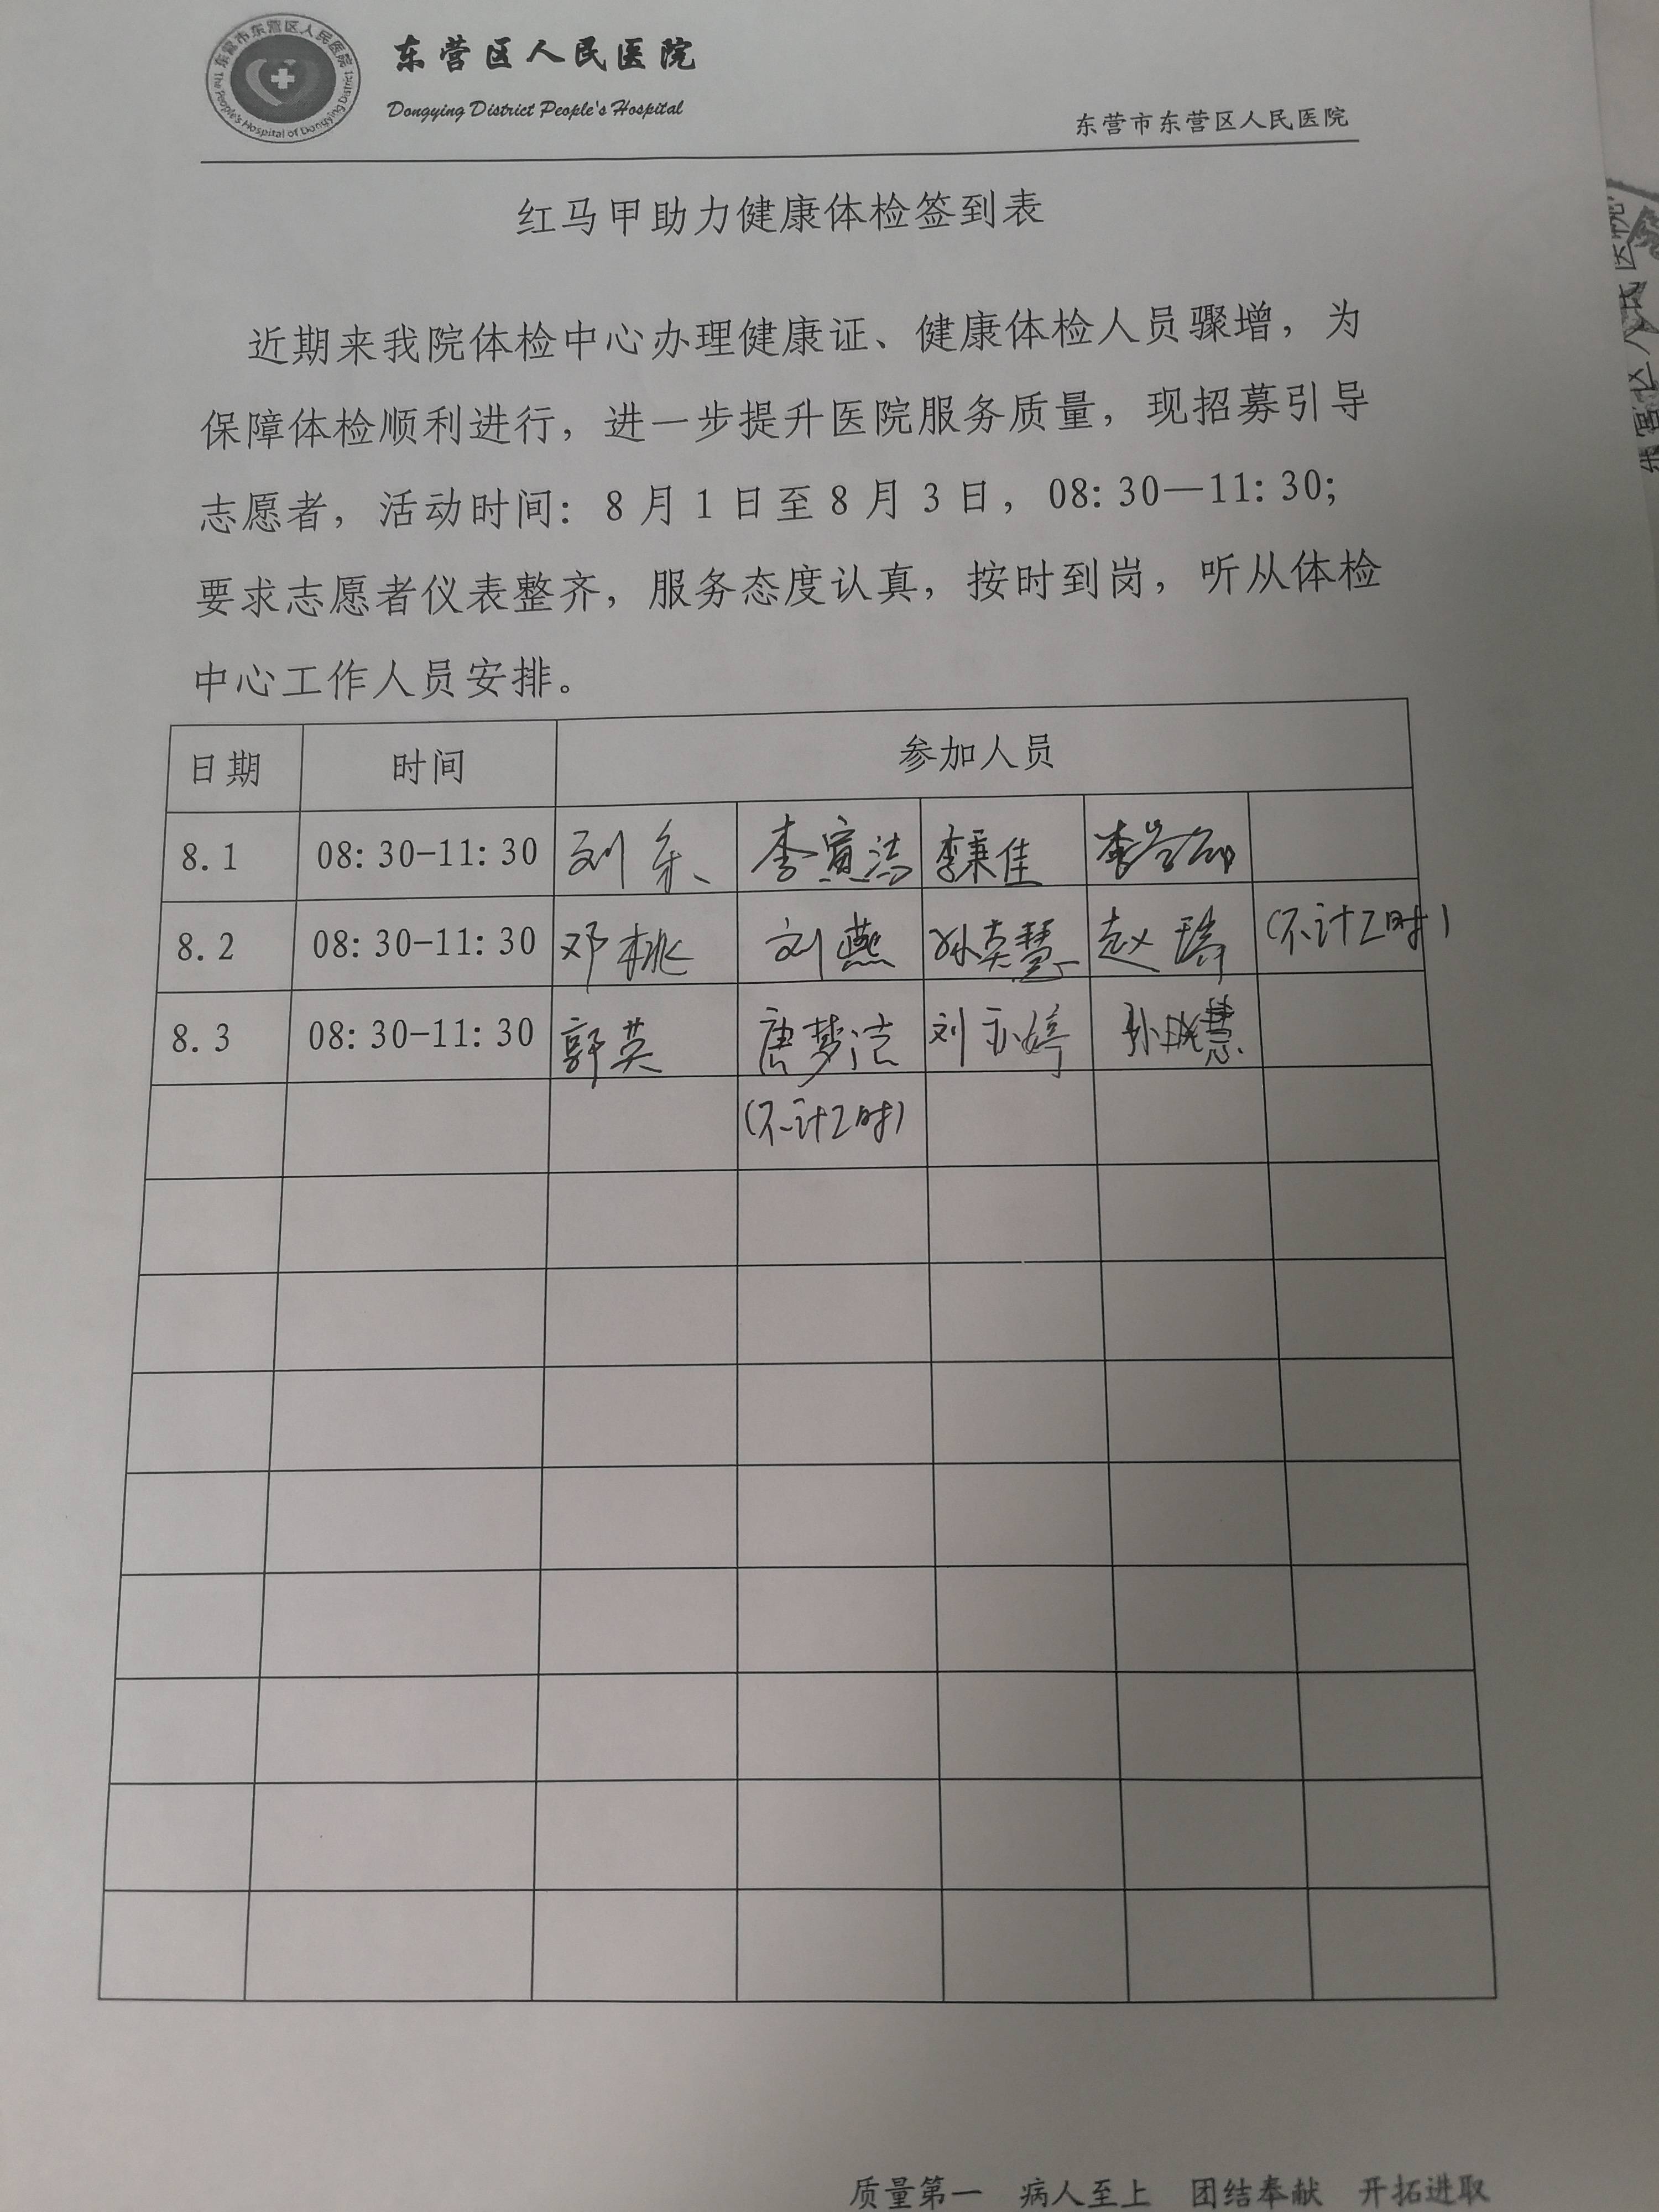 东营市东营区人民医院
The People's Hospital of Dongying District
东营区人民医院
Dongying District People's Hospital
东营市东营区人民医院
红马甲助力健康体检签到表
近期来我院体检中心办理健康证、健康体检人员骤增，为
保障体检顺利进行，进一步提升医院服务质量，现招募引导
志愿者，活动时间：8月1日至8月3日，08:30—11:30；
要求志愿者仪表整齐，服务态度认真，按时到岗，听从体检
中心工作人员安排。
日期 时间 参加人员
8.1 08:30-11:30 刘 李寅洁 李秉佳 李
8.2 08:30-11:30 邓桃 刘燕 孙奕慧 赵 (不计工时)
8.3 08:30-11:30 郭英 唐梦洁 刘亦婷 孙晓慧
(不计工时)
质量第一 病人至上 团结奉献 开拓进取